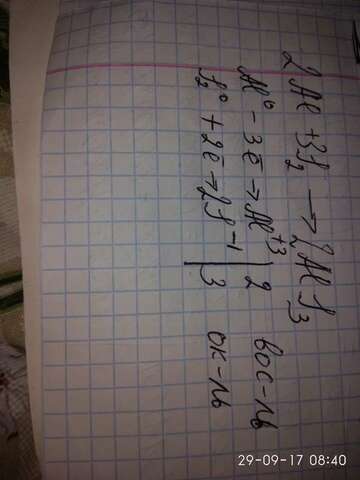 2Al + 3J₂ → 2AlJ₃
Al⁰ - 3ē → Al⁺³ | 2 вос-ль
J₂⁰ + 2ē → 2J⁻¹ | 3 ок-ль
29-09-17 08:40